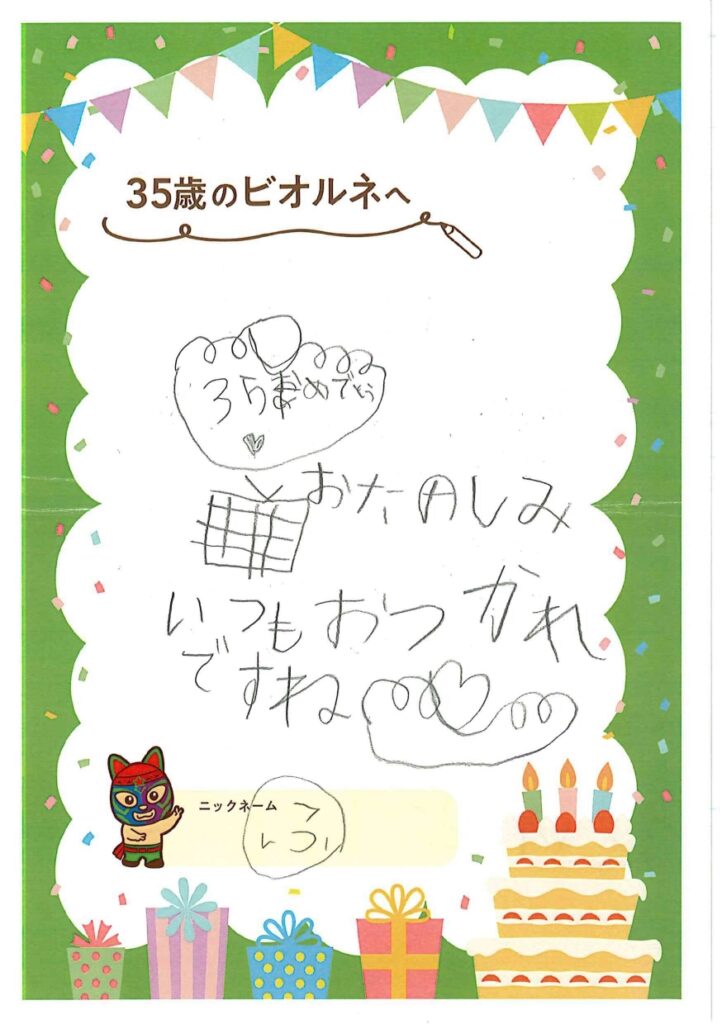 35歳のビオルネへ
35さいおめでとう
おたのしみ
いつもおつかれ
ですね
ニックネーム